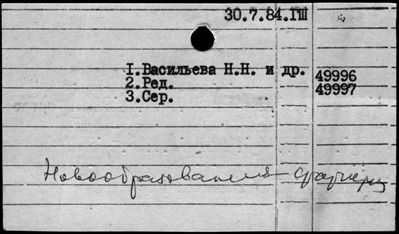 30.7.84.ГШ
I.Васильева Н.Н. и др. 49996
2.Ред. 49997
3.Сер.
Новообразования